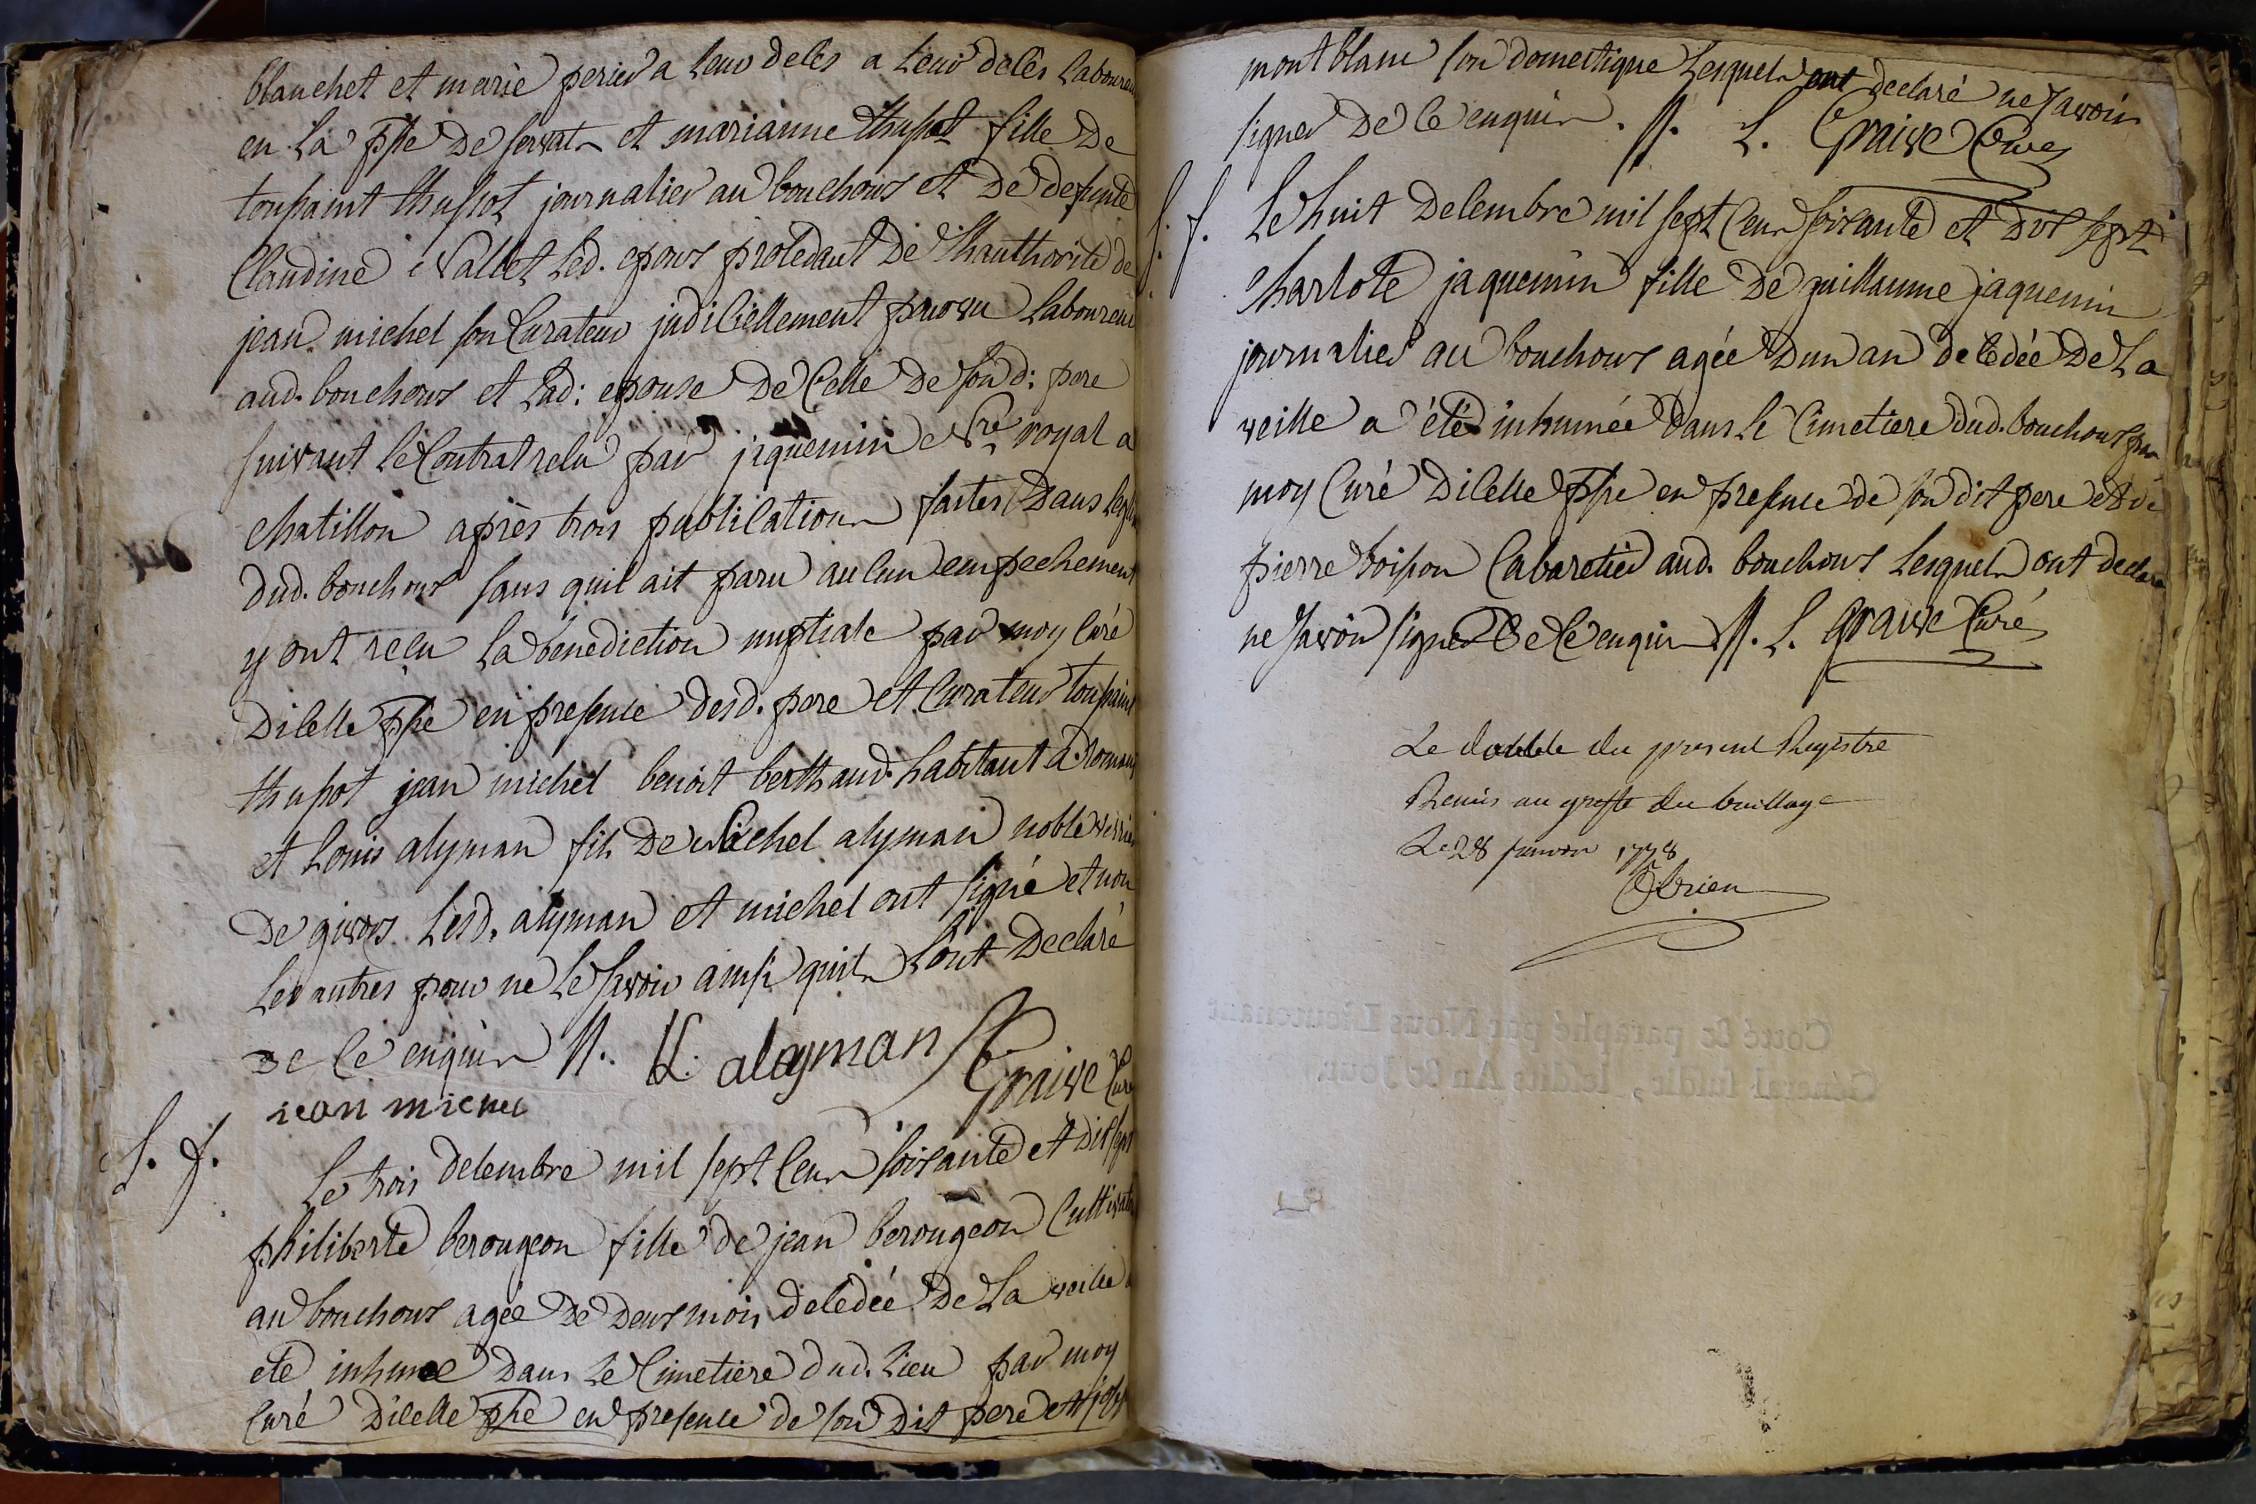 blanchet et marie perier a leur deces a leur deces laboureur
en la psse de servat et marianne thusot fille de
toussaint thusot journalier au bouchoux et de defunte
Claudine Vallet led. epoux procedant de l'hauthorité de
jean michel son Curateur judiciellement pourvu laboureur
aud. bouchoux et lad: epouse de celle de sond: pere
suivant le Contrat relu par jaquemin Nre royal a
chatillon après trois publications faites dans leglise
dud. bouchoux sans quil ait paru aucun empechement
y ont reçu la bénédiction nuptiale par moy curé
dicelle psse en presence desd. pere et Curateur toussaint
thusot jean michel benoit berthaud habitant a
et Louis alyman fils de Michel alyman noble verrier
de givors Lesd. alyman et michel ont signé et non
les autres pour ne le savoir ainsi quils l'ont declaré
de ce enquis //. L: alayman Graive Curé
jean michel
S. f.
Le trois decembre mil sept cent soixante et dix sept
philiberte berougeon fille de jean berougeon Cultivateur
au bouchoux agée de deux mois decedée de la veille a
eté inhumee dans le Cimetiere dud. lieu par moy
Curé dicelle psse en presence de son dit pere et
mont blanc son domestique Lesquels ont declaré ne savoir
signer de ce enquis. //. L. Graive Curé
S. f.
Le huit decembre mil sept cent soixante et dix sept
charlote jaquemin fille de guillaume jaquemin
journalier au bouchoux agée dun an decedée de la
veille a été inhumée dans le Cimetiere dud. bouchoux par
moy Curé dicelle psse en presence de son dit pere et de
pierre boisson Cabaretier aud. bouchoux Lesquels ont declaré
ne savoir signer de ce enquis //. L. Graive Curé
Le double du present Registre
Remis au greffe du bailliage
Le 28 janvier 1778
Obrien
Cotté & paraphé par Nous Lieutenant
Général susdit, lesdits An & Jour.